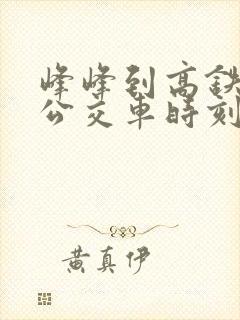 峰峰到高鉄
公交車時刻
黄真伊